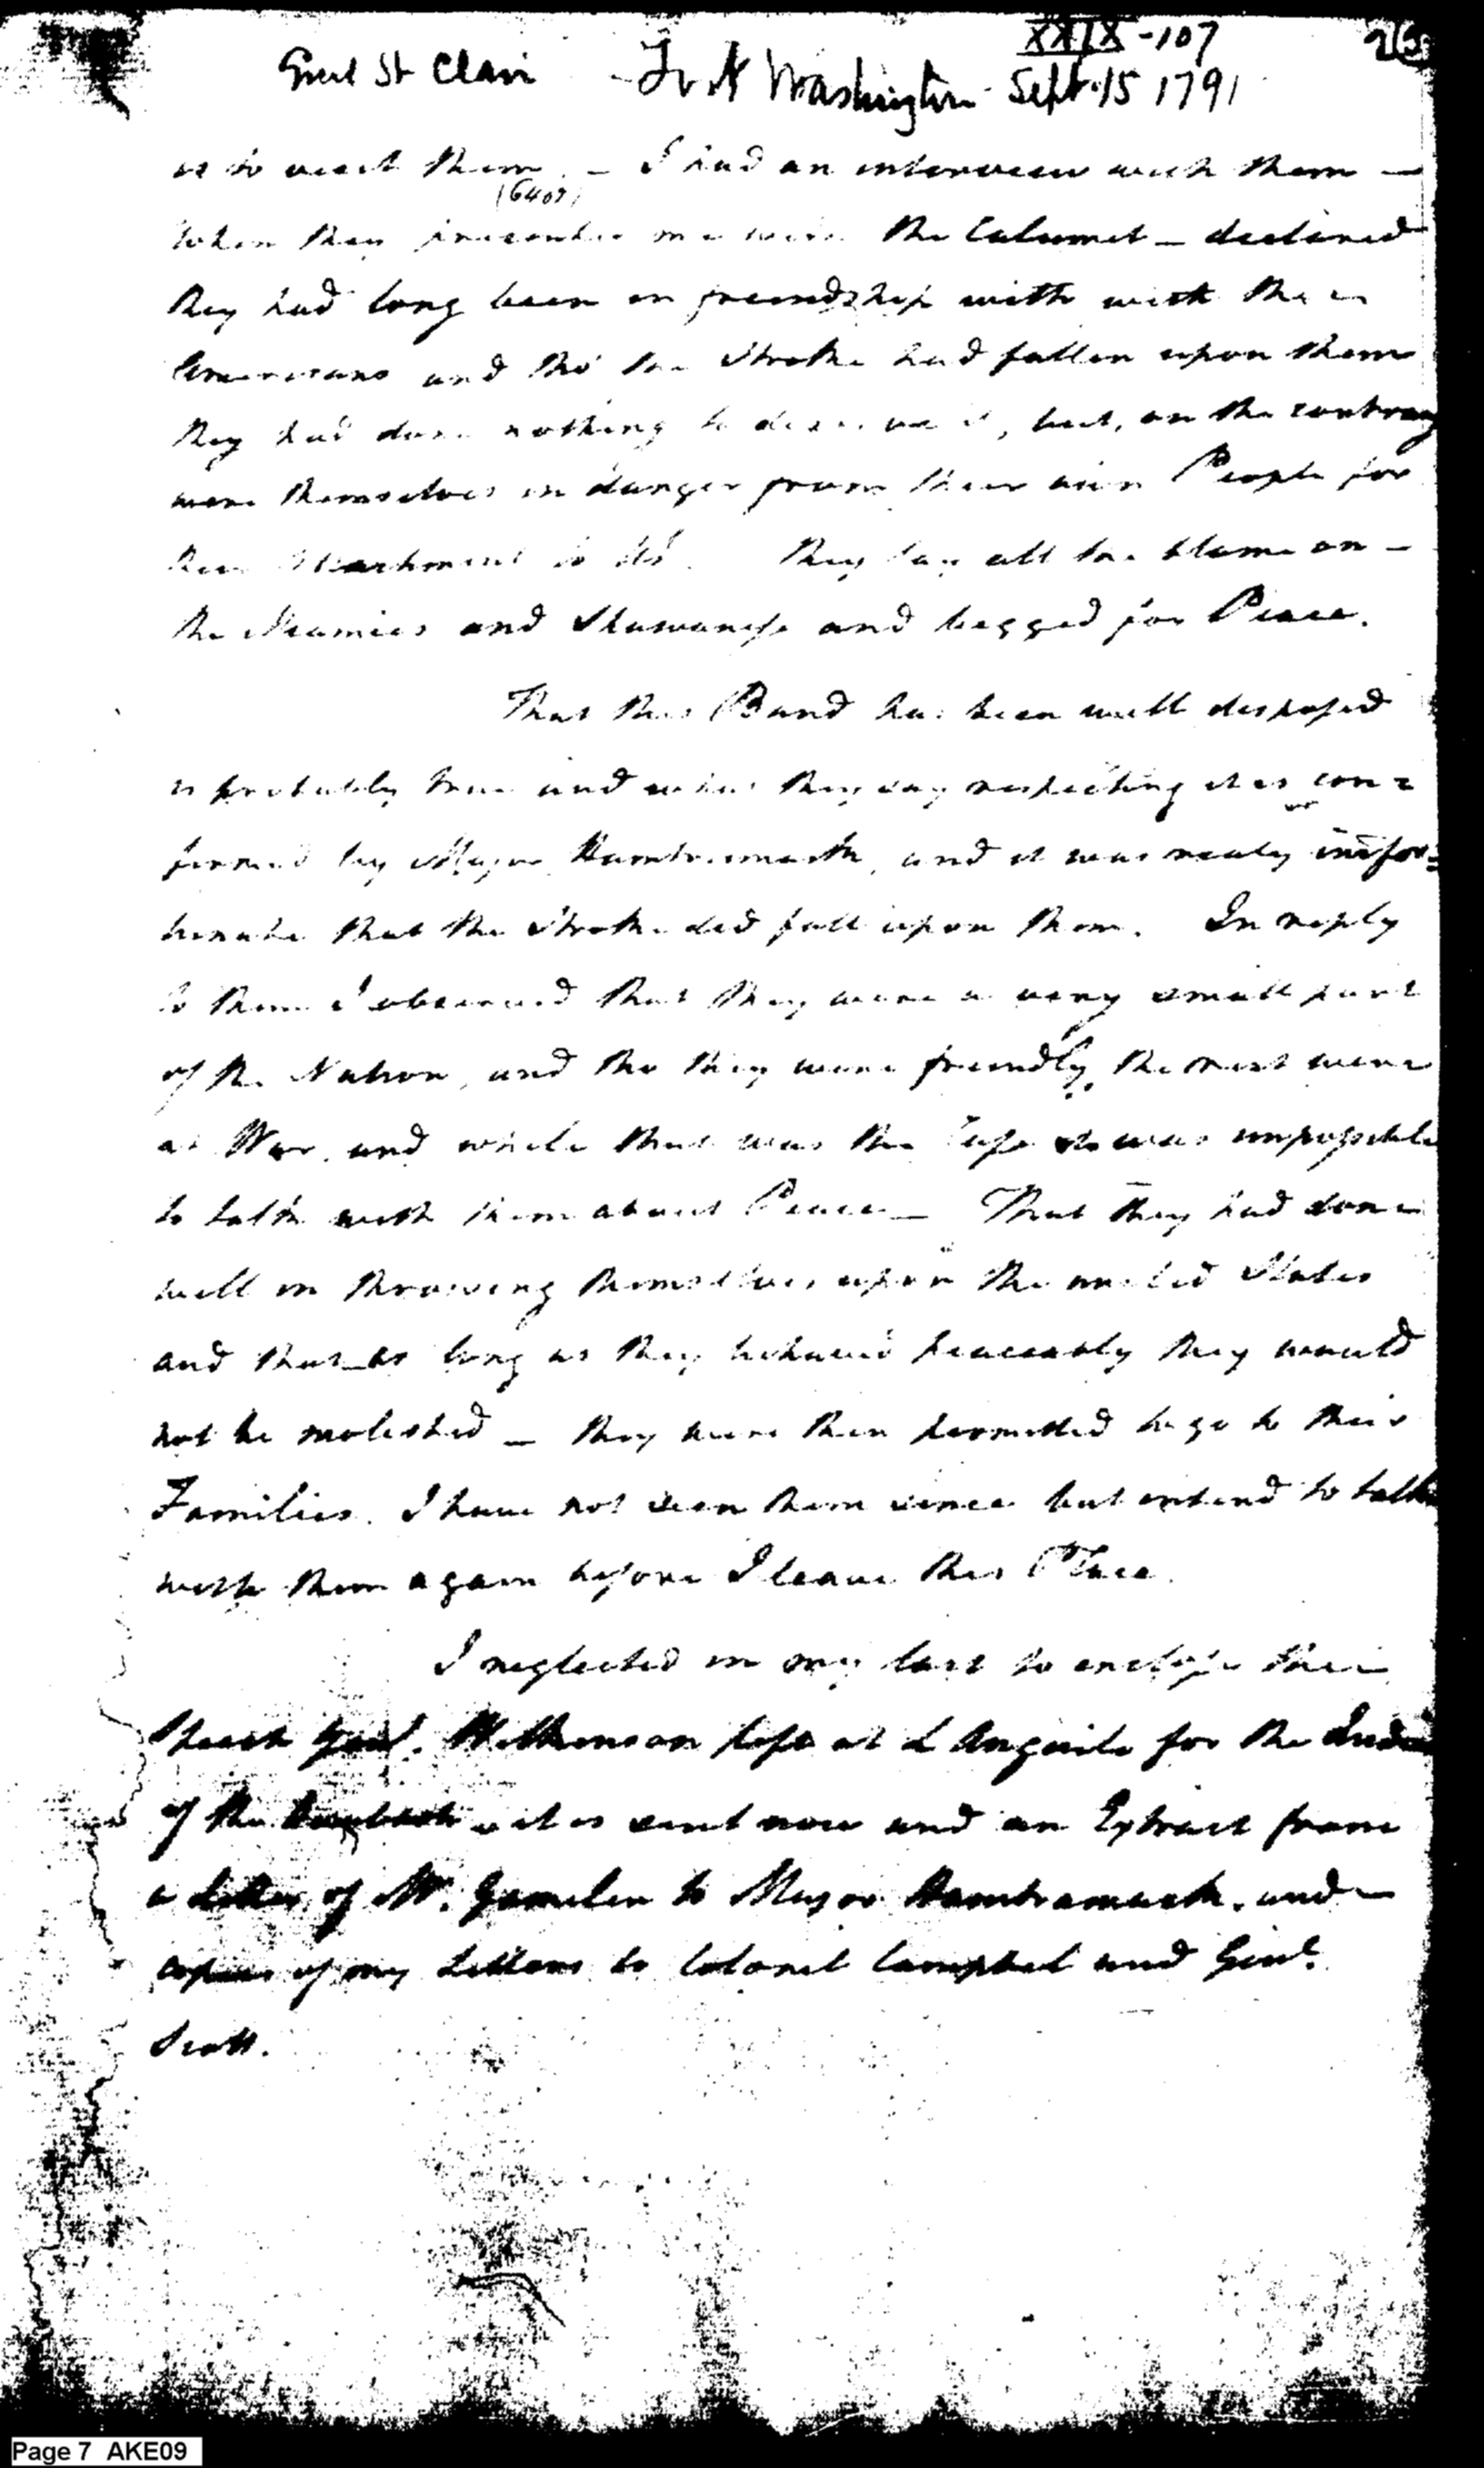 XXIX-107
Genl St Clair Fort Washington Sept. 15 1791
us to visit them. – I had an interview with them –
(640?)
when they presented me with the Calumet – declared
they had long been in friendship with with the
Americans and tho' the Stroke had fallen upon them
they had done nothing to deserve it, but, on the contrary
were themselves in danger from their own People for
their Attachment to Us. They lay all the blame on –
the Miamies and Shawanese and begged for Peace.
That this Band has been well disposed
is probably true and what they say respecting it is con=
firmed by Major Hamtramack, and it was realy unfor=
tunate that the Stroke did fall upon them. In reply
to them I observed that they were a very small part
of the Nation, and tho they were friendly, the rest were
at War, and while that was the Case it was impossible
to talk with them about Peace – That they had done
well in throwing themselves upon the united States
and that as long as they behaved peaceably they would
not be molested – they were then permitted to go to their
Families. I have not seen them since but intend to talk
with them again before I leave this Place.
I neglected in my last to enclose the
Speech Genl. Wilkinson left at L'Anguile for the
of the – it is sent now and an Extract from
a Letter of Mr. Gamelin to Major Hamtramack. and –
copies of my Letters to Colonel Campbel and Genl.
Scott.
Page 7 AKE09